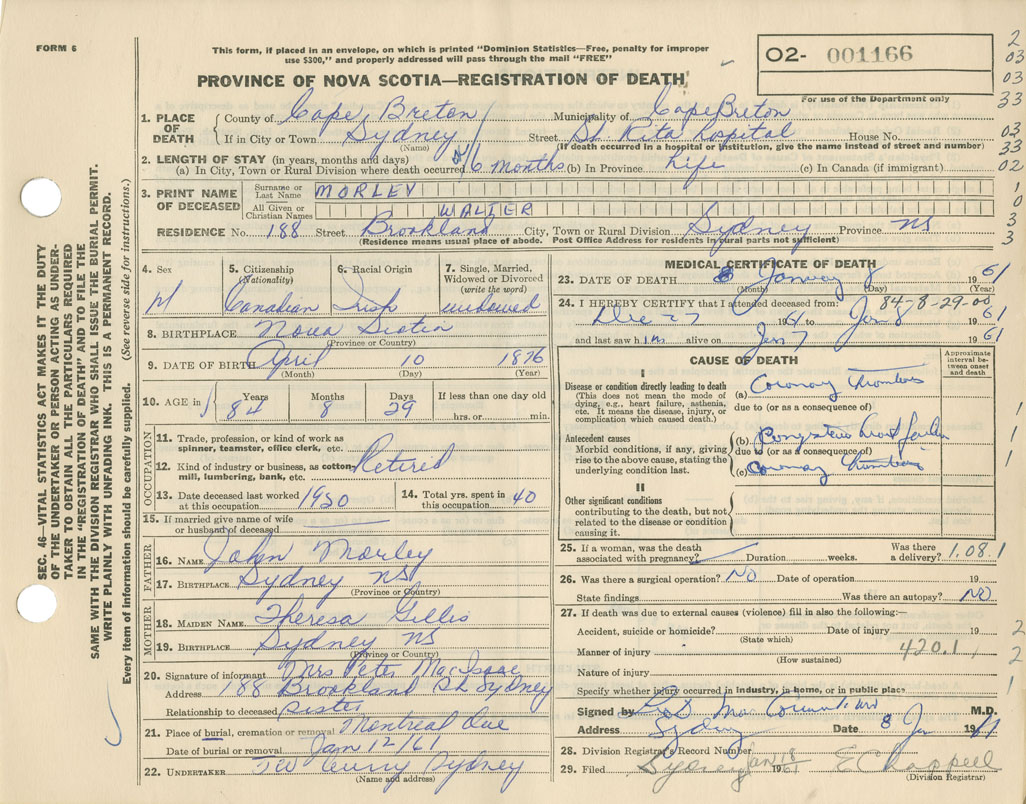 FORM 6
This form, if placed in an envelope, on which is printed "Dominion Statistics—Free, penalty for improper
use $300," and properly addressed will pass through the mail "FREE"
O2- 001166
For use of the Department only
PROVINCE OF NOVA SCOTIA—REGISTRATION OF DEATH
2
03
03
33
03
33
02
1
0
3
3
1. PLACE OF DEATH
County of Cape Breton Municipality of Cape Breton
If in City or Town Sydney Street St. Rita Hospital House No.
(Name) (If death occurred in a hospital or institution, give the name instead of street and number)
2. LENGTH OF STAY (in years, months and days)
(a) In City, Town or Rural Division where death occurred 6 months (b) In Province Life (c) In Canada (if immigrant)
3. PRINT NAME OF DECEASED
Surname or Last Name MORLEY
All Given or Christian Names WALTER
RESIDENCE No. 188 Street Brookland City, Town or Rural Division Sydney Province NS
(Residence means usual place of abode. Post Office Address for residents in rural parts not sufficient)
4. Sex M
5. Citizenship (Nationality) Canadian
6. Racial Origin Irish
7. Single, Married, Widowed or Divorced (write the word) widowed
8. BIRTHPLACE Nova Scotia
(Province or Country)
9. DATE OF BIRTH April 10 1876
(Month) (Day) (Year)
10. AGE in
Years Months Days If less than one day old
84 8 29 hrs. or min.
OCCUPATION
11. Trade, profession, or kind of work as
spinner, teamster, office clerk, etc.
12. Kind of industry or business, as cotton Retired
mill, lumbering, bank, etc.
13. Date deceased last worked at this occupation 1950
14. Total yrs. spent in this occupation 40
15. If married give name of wife
or husband of deceased
FATHER
16. NAME John Morley
17. BIRTHPLACE Sydney NS
(Province or Country)
MOTHER
18. MAIDEN NAME Theresa Gillis
19. BIRTHPLACE Sydney NS
(Province or Country)
20. Signature of informant Mrs Peter MacIsaac
Address 188 Brookland St Sydney
Relationship to deceased sister
21. Place of burial, cremation or removal Montreal Que
Date of burial or removal Jan 12/61
22. UNDERTAKER Curry Sydney
(Name and address)
MEDICAL CERTIFICATE OF DEATH
23. DATE OF DEATH 8 1961
(Month) (Day) (Year)
84-8-29-00
24. I HEREBY CERTIFY that I attended deceased from:
Dec 27 19 to Jan 8 1961
and last saw him alive on Jan 7 1961
CAUSE OF DEATH
Approximate interval between onset and death
I
Disease or condition directly leading to death
(This does not mean the mode of dying, e.g., heart failure, asthenia, etc. It means the disease, injury, or complication which caused death.)
(a) Coronary Thrombosis
due to (or as a consequence of)
Antecedent causes
Morbid conditions, if any, giving rise to the above cause, stating the underlying condition last.
(b) Congestive heart failure
due to (or as a consequence of)
(c) Coronary Thrombosis
1
1
1
II
Other significant conditions
contributing to the death, but not related to the disease or condition causing it.
25. If a woman, was the death
associated with pregnancy? Duration weeks. Was there a delivery? 1.08.1
26. Was there a surgical operation? NO Date of operation 19
State findings Was there an autopsy? NO
27. If death was due to external causes (violence) fill in also the following:—
Accident, suicide or homicide? Date of injury 19
(State which)
Manner of injury 420.1
(How sustained)
Nature of injury
Specify whether injury occurred in industry, in home, or in public place
2
2
1
Signed by M.D.
Address Sydney Date 8 Jan 19
28. Division Registrar's Record Number
29. Filed Sydney Jan 18 1961 E Chappell
(Division Registrar)
SEC. 46—VITAL STATISTICS ACT MAKES IT THE DUTY
OF THE UNDERTAKER OR PERSON ACTING AS UNDER-
TAKER TO OBTAIN ALL THE PARTICULARS REQUIRED
IN THE "REGISTRATION OF DEATH" AND TO FILE THE
SAME WITH THE DIVISION REGISTRAR WHO SHALL ISSUE THE BURIAL PERMIT.
WRITE PLAINLY WITH UNFADING INK. THIS IS A PERMANENT RECORD.
Every item of information should be carefully supplied. (See reverse side for instructions.)